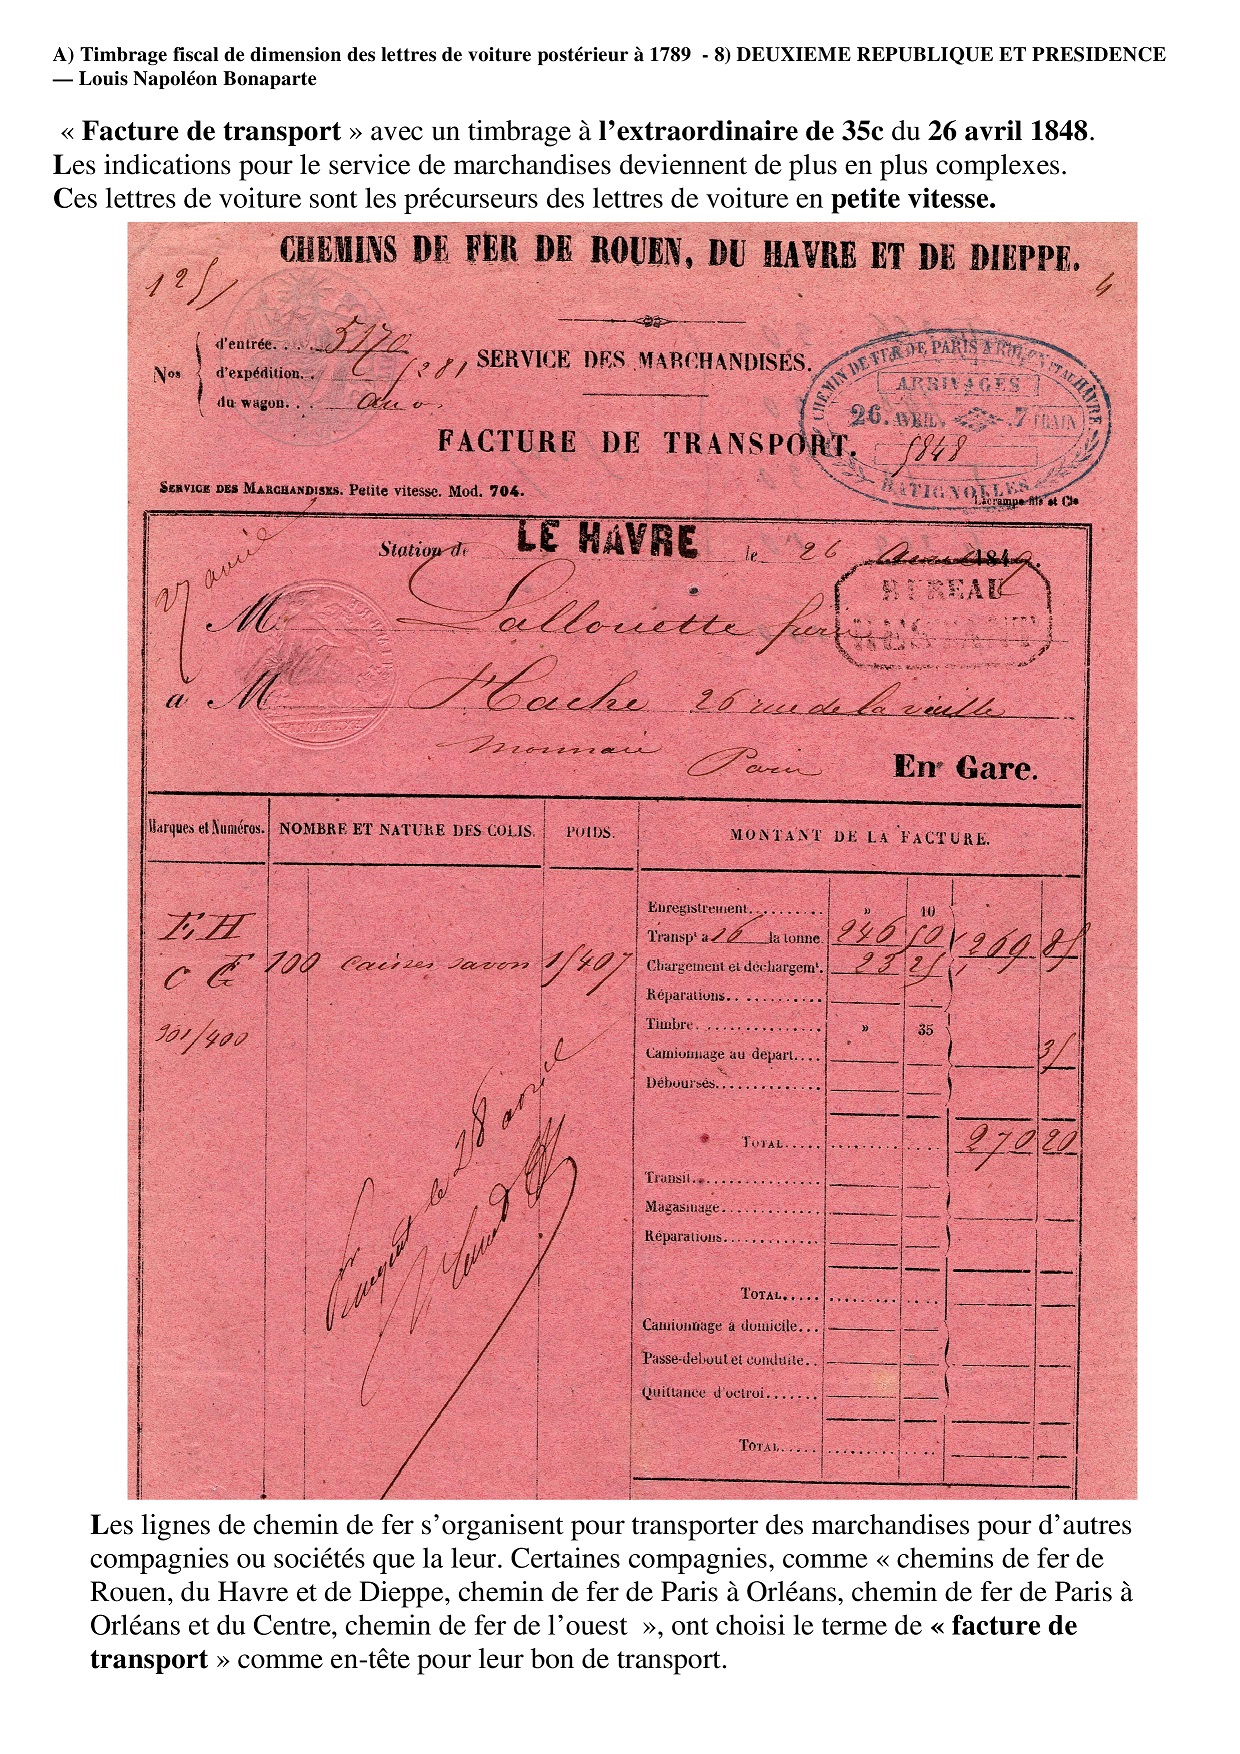 A) Timbrage fiscal de dimension des lettres de voiture postérieur à 1789 - 8) DEUXIEME REPUBLIQUE ET PRESIDENCE
— Louis Napoléon Bonaparte
« Facture de transport » avec un timbrage à l’extraordinaire de 35c du 26 avril 1848.
Les indications pour le service de marchandises deviennent de plus en plus complexes.
Ces lettres de voiture sont les précurseurs des lettres de voiture en petite vitesse.
CHEMINS DE FER DE ROUEN, DU HAVRE ET DE DIEPPE.
125
4
Nos
d'entrée. . . . 5170
d'expédition. . 6281
du wagon. . .
SERVICE DES MARCHANDISES.
CHEMIN DE FER DE PARIS A ROUEN ET AU HÂVRE
ARRIVAGES
26. AVRIL. .7 TRAIN
1848
BATIGNOLLES
FACTURE DE TRANSPORT.
SERVICE DES MARCHANDISES. Petite vitesse. Mod. 704.
Lacrampe fils et Cie
27 avril
Station de LE HAVRE le 26 avril 184
BUREAU
RESTANT
M Lallouette
a M Hache 26 rue de la vieille
monnaie Paris
En Gare.
Marques et Numéros.
NOMBRE ET NATURE DES COLIS.
POIDS.
MONTANT DE LA FACTURE.
E H
C C
301/400
100 caisses savon 15407
Enregistrement. . . . . . . . . » 10
Transpt a 16 la tonne. 246 50 269 85
Chargement et déchargemt. 23 25
Réparations. . . . . . . . . . . .
Timbre. . . . . . . . . . . . . . . » 35
Camionnage au départ. . . . 35
Déboursés. . . . . . . . . . . . .
TOTAL. . . . . 270 20
Transit. . . . . . . . . . . . . . .
Magasinage. . . . . . . . . . . . .
Réparations. . . . . . . . . . . .
TOTAL. . . . .
Camionnage à domicile. . .
Passe-debout et conduite. .
Quittance d'octroi. . . . . . .
TOTAL. . . . .
le 28 avril
Les lignes de chemin de fer s’organisent pour transporter des marchandises pour d’autres
compagnies ou sociétés que la leur. Certaines compagnies, comme « chemins de fer de
Rouen, du Havre et de Dieppe, chemin de fer de Paris à Orléans, chemin de fer de Paris à
Orléans et du Centre, chemin de fer de l’ouest », ont choisi le terme de « facture de
transport » comme en-tête pour leur bon de transport.